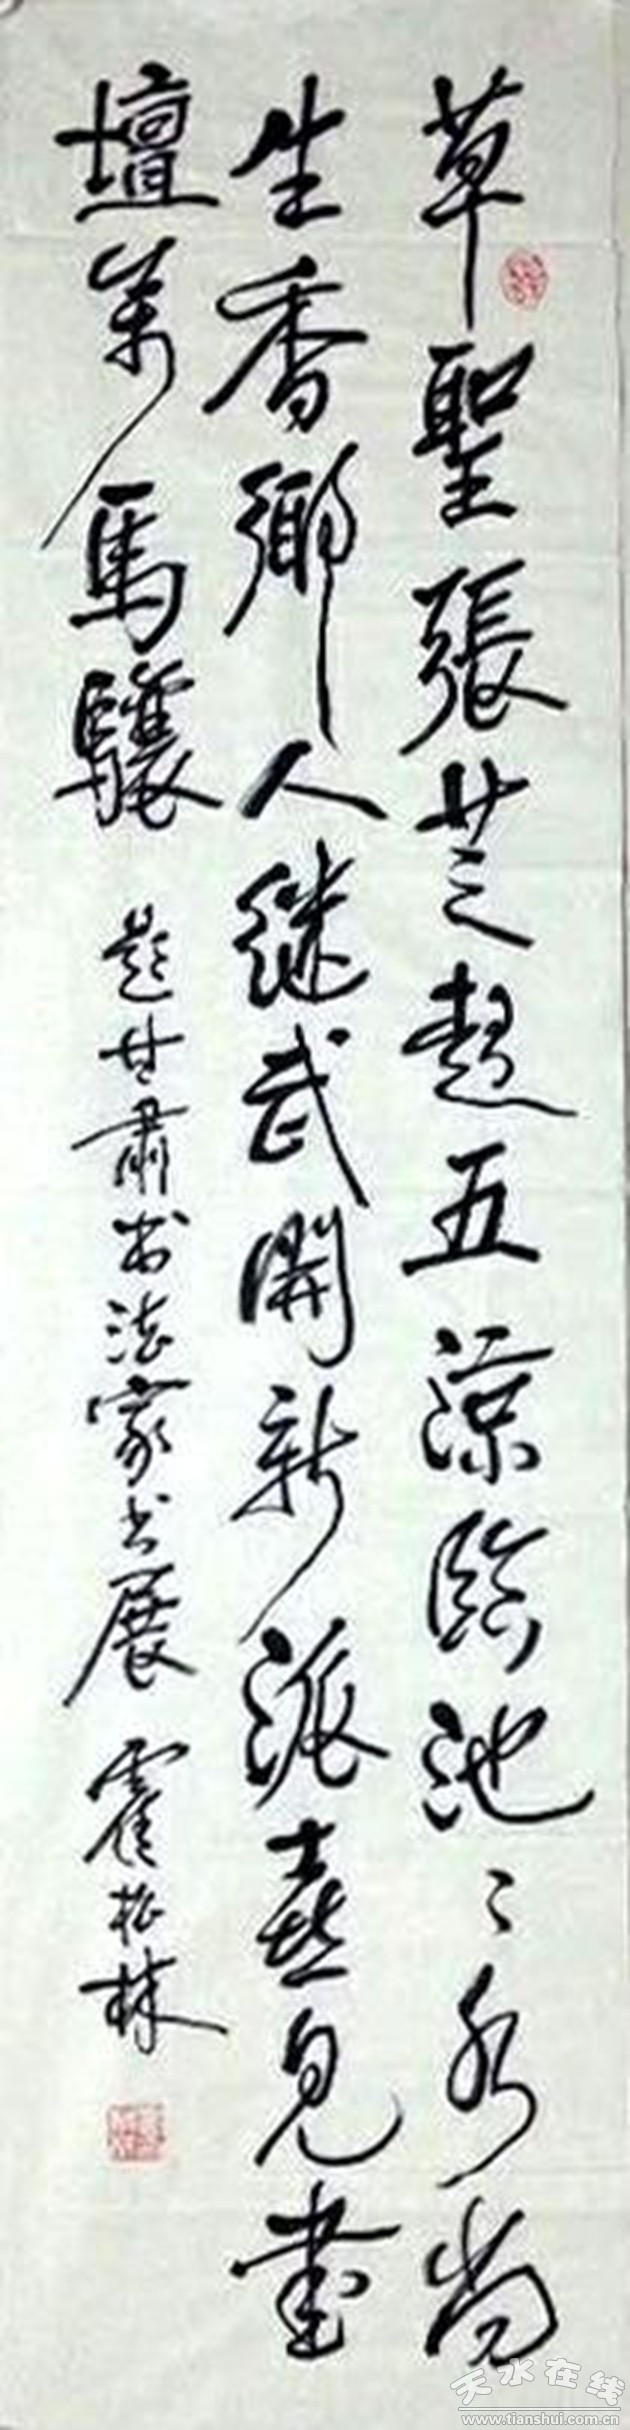 草聖張芝起五涼臨池〻水尚
生香鄉人继武開新派喜見書
壇萬馬驤
題甘肅书法家书展 霍松林
天水在线
www.tianshui.com.cn